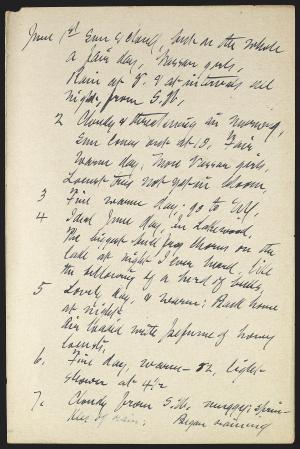 June 1st Sun & clouds, but on the whole
a fair day, Vassar girls,
Rain at 8. & at intervals all
night, from S.W.,
2 Cloudy & threatening in morning,
Sun comes out at 10, Fair
warm day, more Vassar girls,
Locust trees not yet in bloom,
3 Fine warm day; go to
4 Ideal June day, in Lakewood,
The biggest bull frog chorus on the
lake at night I ever heard, like
the bellowing of a herd of bulls,
5 Lovely day, & warm: Back home
at night.
Air loaded with perfume of honey
locusts.
6. Fine day, warm - 82, light
shower at 4 1/2
7. Cloudy from S.W. muggy: sprin-
kles of rain: Began raining